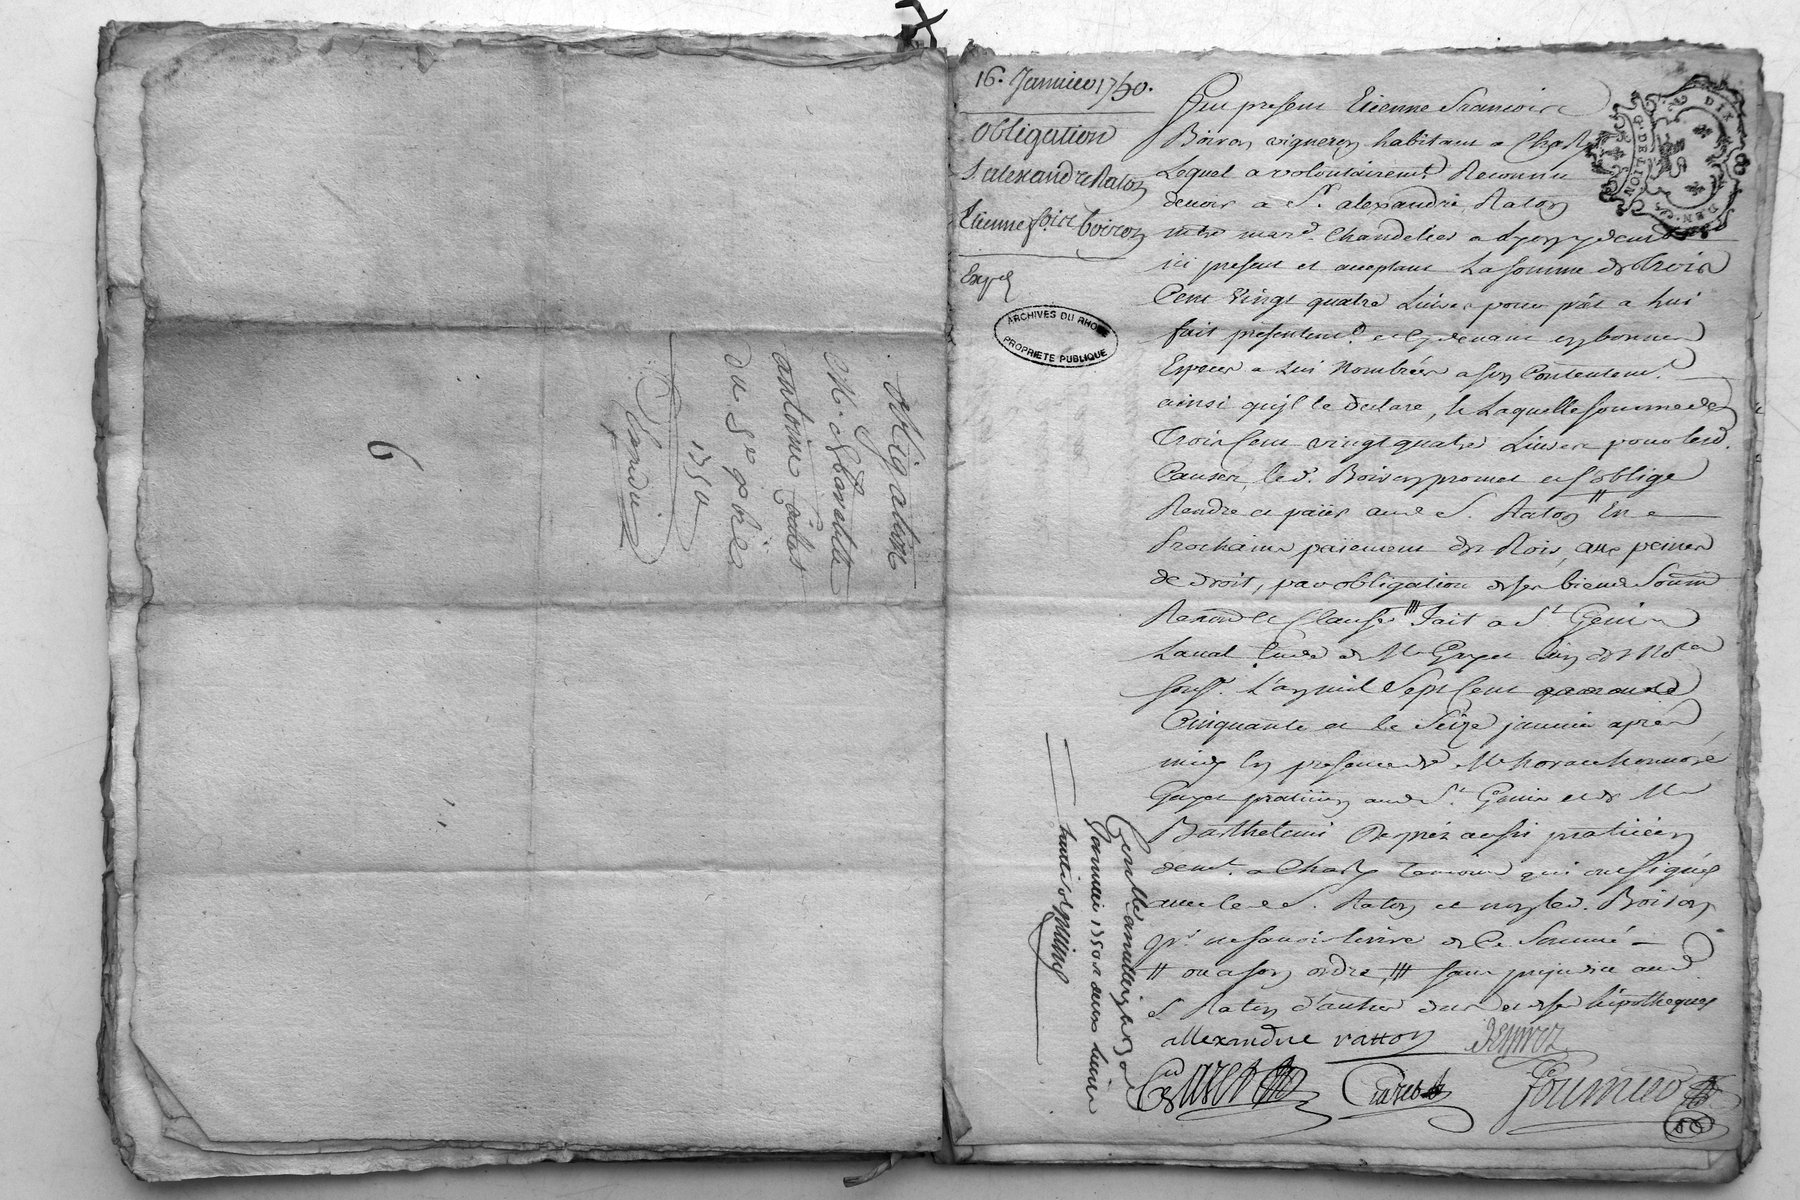 obligation
M.
antoine
du Sr
1750
6
16. Janvier 1750.
obligation
S alexandre Raton
Etienne foise Boiron
Exp
ARCHIVES DU RHONE
PROPRIETE PUBLIQUE
G. DE LION
DIX
DEN.
Fut present Etienne Francoise
Boiron vigneron habitant a Charly
Lequel a volontairemt Reconnu
devoir a Sr. alexandre Raton
mtre mard. Chandelier a Lyon y demt
ici present et acceptant La somme de trois
Cent vingt quatre Livres pour prêt a lui
fait presentemt. et cy devant en bonnes
Especes a Lui Nombrées a son Contentemt.
ainsi qu'il le declare, la Laquelle somme de
Trois Cent vingt quatre Livres pour lesd.
Causes, led. Boiron promet et s'oblige
Rendre et paier aud S. Raton // En
Prochains paiement des Rois, aux peines
de droit, par obligation de ses biens Soum
Renon et Clauses /// fait a St. Genis
Laval Etude de Me Guyot L'un des Nores
sousse. L'an mil Sept Cent
Cinquante et le Seize janvier après
midy En presence de Me honoré
Guyot praticien aud St. Genis et de Me
Barthelemi Desprez aussi praticien
demt. a Charly temoins qui ont signés
avec led S. Raton et non led. Boiron
pr. ne savoir Ecrire de Ce Sommé
// ou a son ordre, /// sans prejudice aud
S Ratton d'autres dus et de ses hipotheques
allexandre ratton
Desprez
Guyot
Fournier
Janvier 1750 R deux livres
huit sols